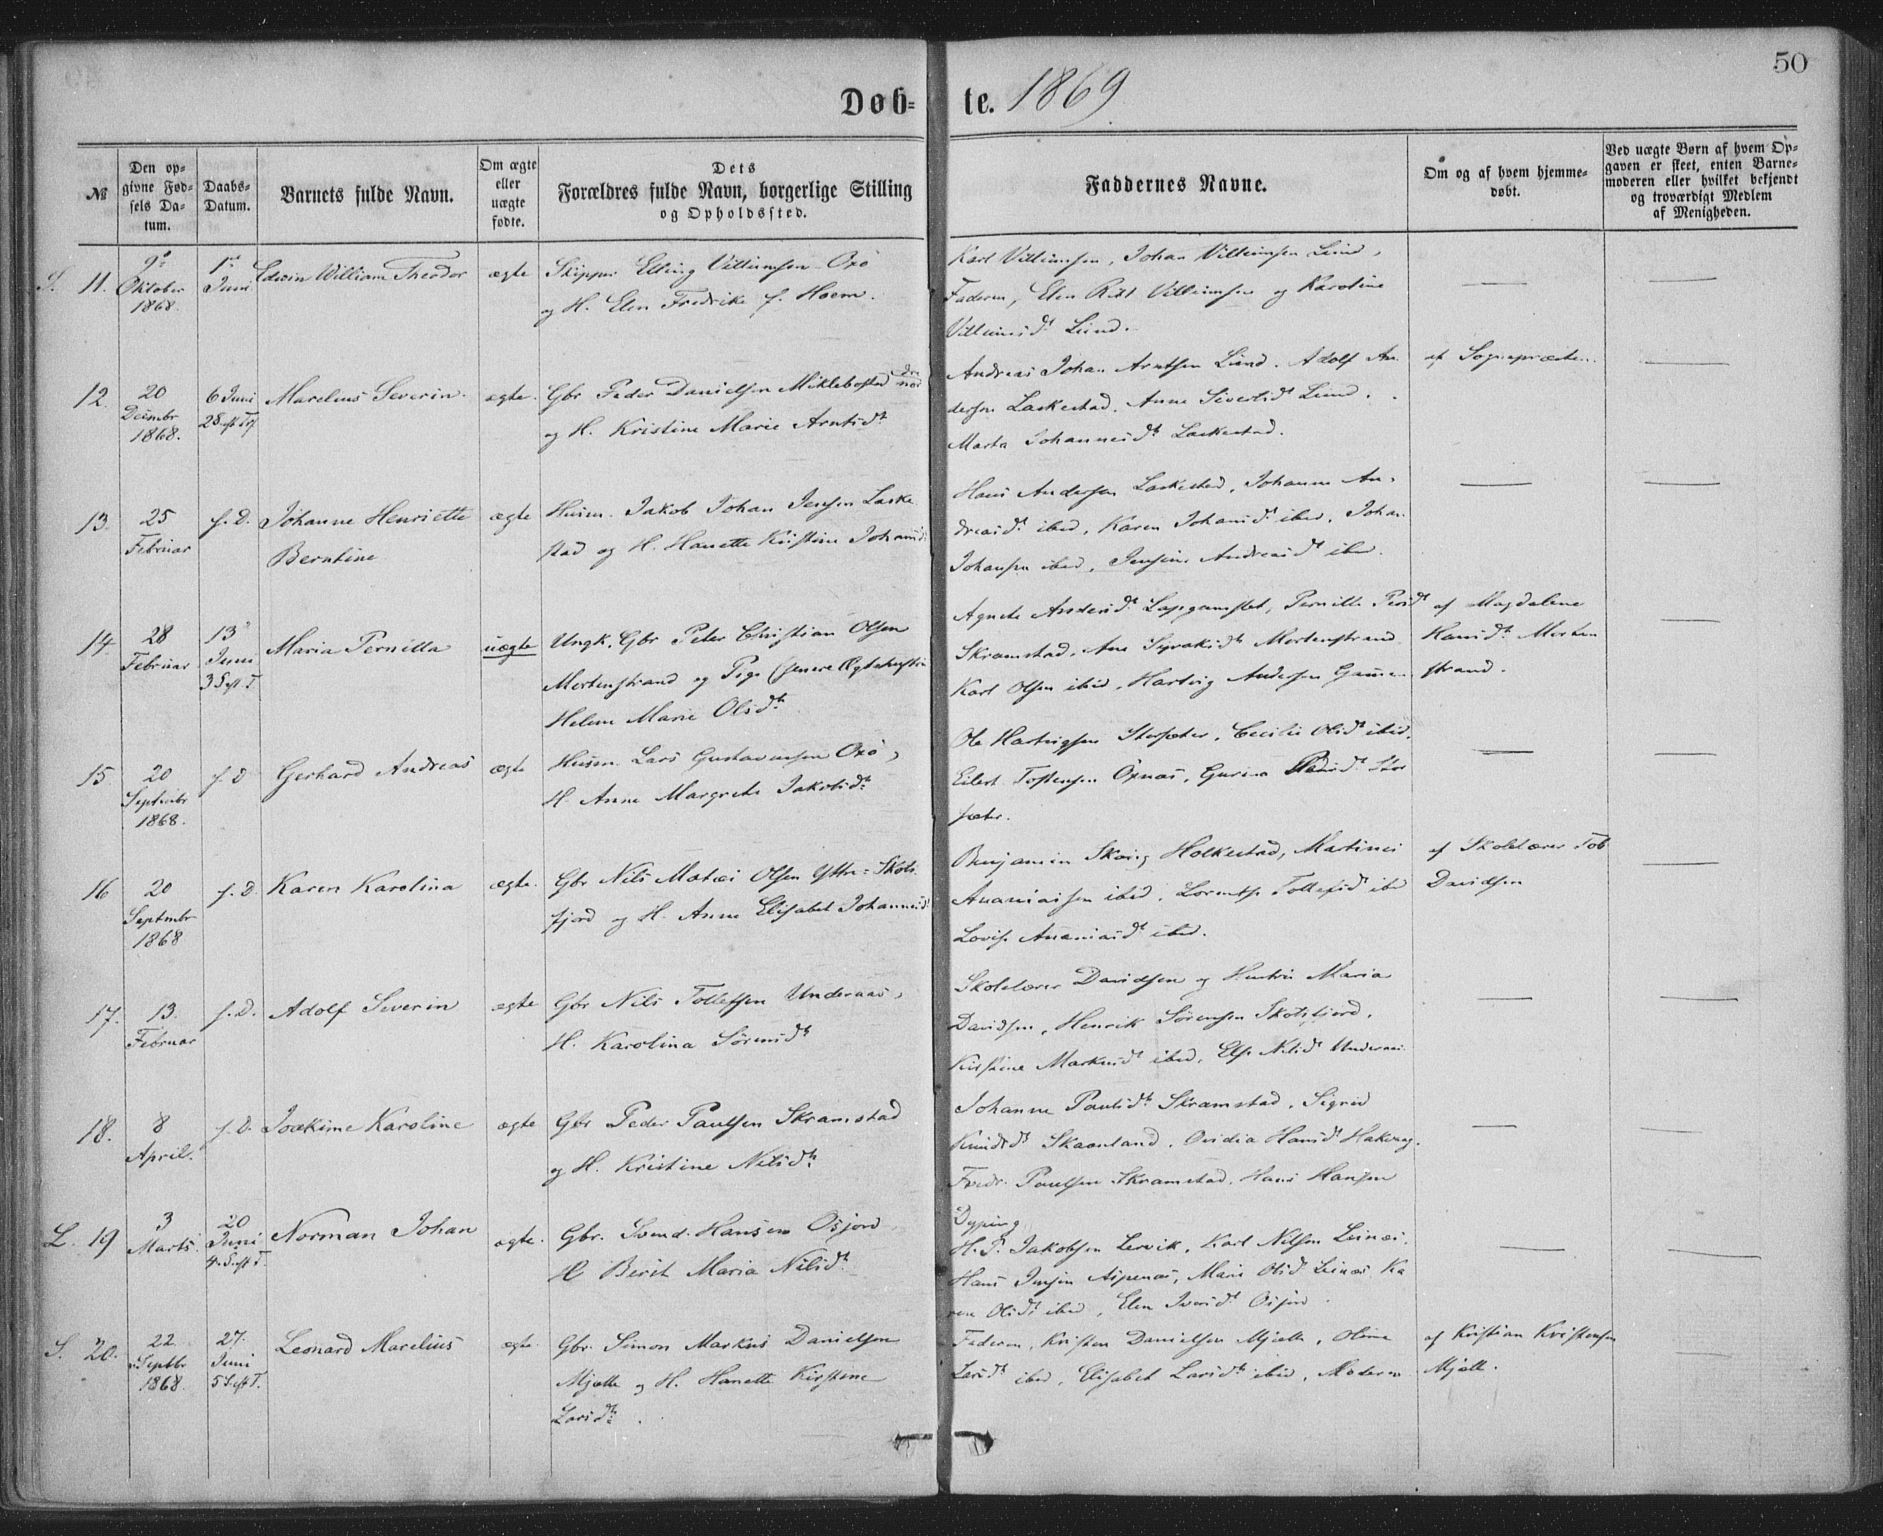 50
Døb-te. 1869
№
Den op-
givne Fød-
sels Da-
tum.
Daabs-
Datum.
Barnets fulde Navn.
Om ægte
eller
uægte
fødte.
Dets
Forældres fulde Navn, borgerlige Stilling
og Opholdssted.
Faddernes Navne.
Om og af hvem hjemme-
døbt.
Ved uægte Børn af hvem Op-
gaven er skeet, enten Barne-
moderen eller hvilket bekjendt
og troværdigt Medlem
af Menigheden.
S. 11.
Oktober
1868.
Juni
Edwin William Theodor
ægte
Skipper Elling Villumsen Oxö
og H. Elen Fredrike f. Hoem.
Karl Villumsen, Johan Villumsen Lund,
Faderen, Elen Villumsen og Karoline
Lund.
12.
20
Decembr
1868.
6 Juni
Marelius Severin.
ægte.
Gbr Peder Danielsen Miklebostad
og H. Kristine Marie Arntsdt
Andreas Johan Arntsen Lund. Adolf An-
dersen Laskestad. Anne Sivertsdt Lund.
Marta Johannesdt Laskestad.
af Sognepræsten.
13.
25
Februar
s. D.
Johanne Henriette
Berntine
ægte
Husm. Jakob Johan Jensen Laske
stad og H. Hanette Kristine Johansdt
Hans Andersen Laskestad, Johanne An-
dreasdt ibid, Karen Johansdt ibid, Johan
Johansen ibid, Jensine Andreasdt ibid.
14.
28
Februar
13
Juni
3 S. eft T.
Maria Pernilla
uægte
Ungk. Gbr Peter Christian Olsen
Mortenstrand og Pige
Helene Marie Olsdt
Agnete Andersdt Pernille Persdt
Skramstad, Mortenstrand
Karl Olsen ibid, Hartvig Andersen
af Magdalene
Hansdt Morten
strand.
15.
20
Septembr
1868.
s. D
Gerhard Andreas
ægte
Husm. Lars Gustavussen Oxö,
H. Anne Margrete Jakobsdt
Ole Hartvigsen Storsæter, Cecilie Olsdt ibid.
Eilert Tostensen Öxnas, Stor
sæter.
16
20
Septembr
1868
s. D.
Karen Karolina
ægte.
Gbr Nils Matæi Olsen Ytre-Skots
fjord og H. Anne Elisabet Johannesdt
Benjamin Holkestad, Martines
Ananiassen ibid, Tollefsdt ibid
Lovise Ananiasdt ibid.
af Skolelærer Tob
Davidsen
17.
13.
Februar
s. D.
Adolf Severin
ægte
Gbr Nils Tollefsen Underaas,
H. Karolina Sörensdt
Skolelærer Davidsen og Hustru Maria
Davidsen, Henrik Sörensen Skotsfjord,
Kirstine Markusdt ibid, Else Nilsdt Underaas.
18.
8
April.
s. D.
Joakime Karoline
ægte
Gbr Peder Paulsen Skramstad
og H. Kristine Nilsdt
Johanne Paulsdt Skramstad, Sigrid
Knudsdt Skaanland, Ovidia Hansdt
Fredr. Paulsen Skramstad, Hans Hansen
Dyping
L. 19
3
Marts.
20
Juni
4. S. eft T.
Norman Johan
ægte.
Gbr. Svend Hansen Osjord
H Berit Maria Nilsdt
H. P. Jakobsen Lervik, Karl Nilsen Leinæs.
Hans Jensen Aspenæs, Marie Olsdt Leinæs Ka
ren Olsdt ibid, Elen Iversdt Osjord
S. 20.
22
Septbr
1868.
27.
Juni
5 S. eft T.
Leonard Marelius
ægte.
Gbr. Simon Markus Danielsen
Mjelle og H. Hanette Kirstine
Larsdt.
Faderen, Kristen Danielsen Mjelle, Oline
Larsdt ibid, Elisabet Larsdt ibid, Moderen
af Kristian Kristensen
Mjelle.